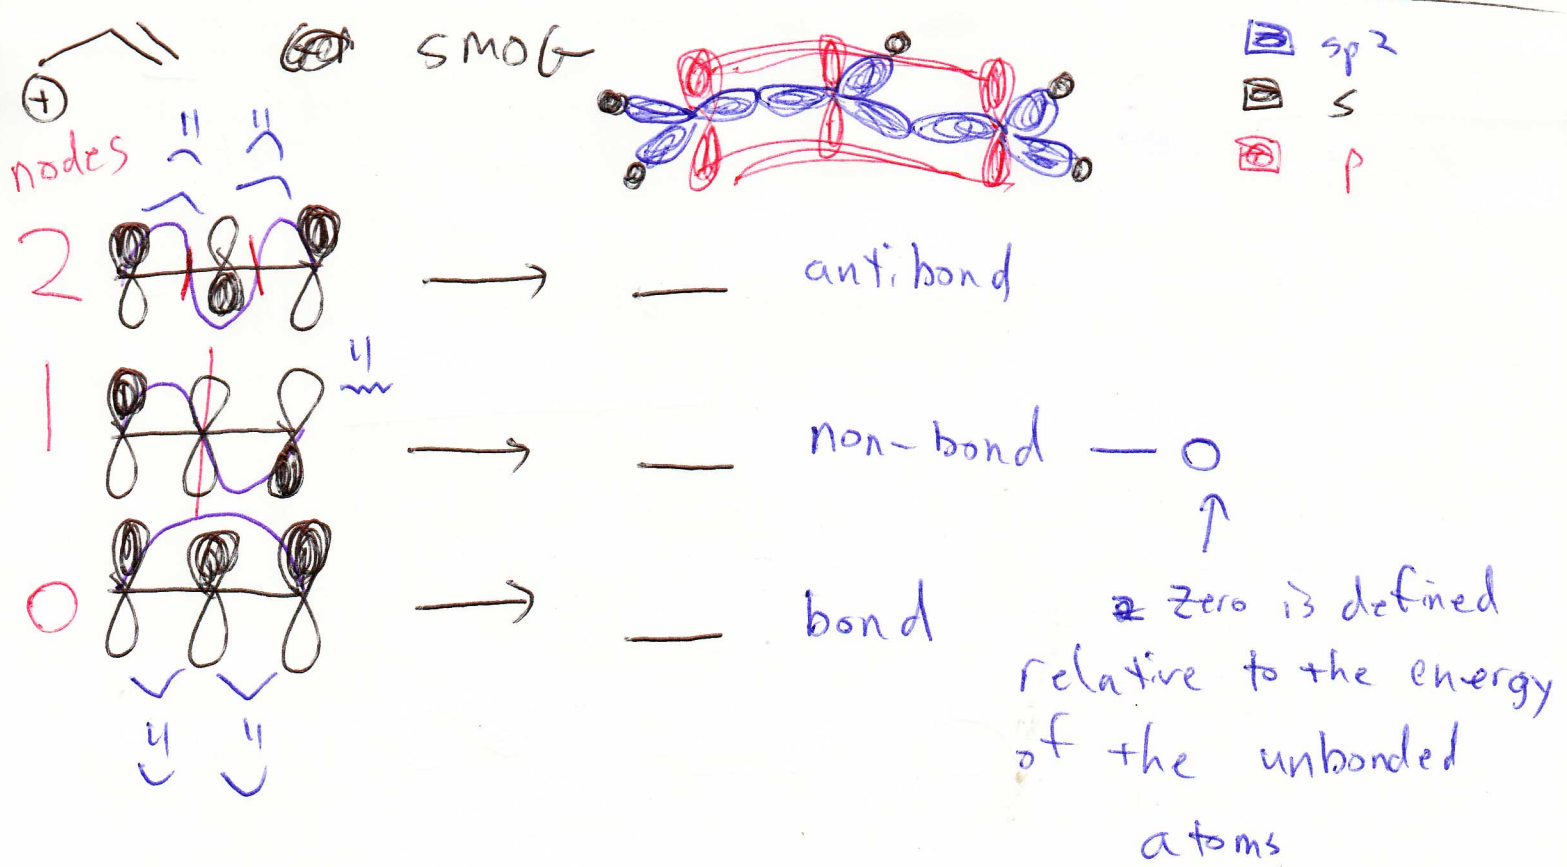 +
SMOG
sp2
s
p
nodes
2
antibond
1
non-bond — 0
0
bond
zero is defined
relative to the energy
of the unbonded
atoms